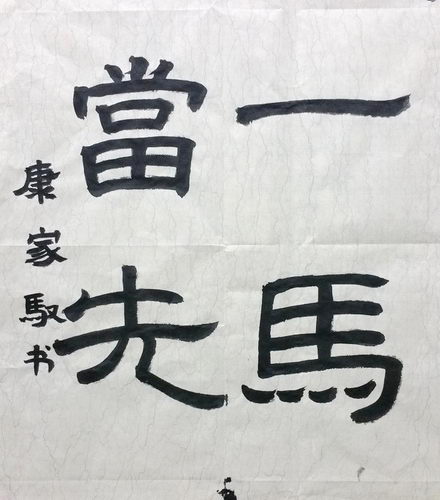 一馬
當先
康家馭书